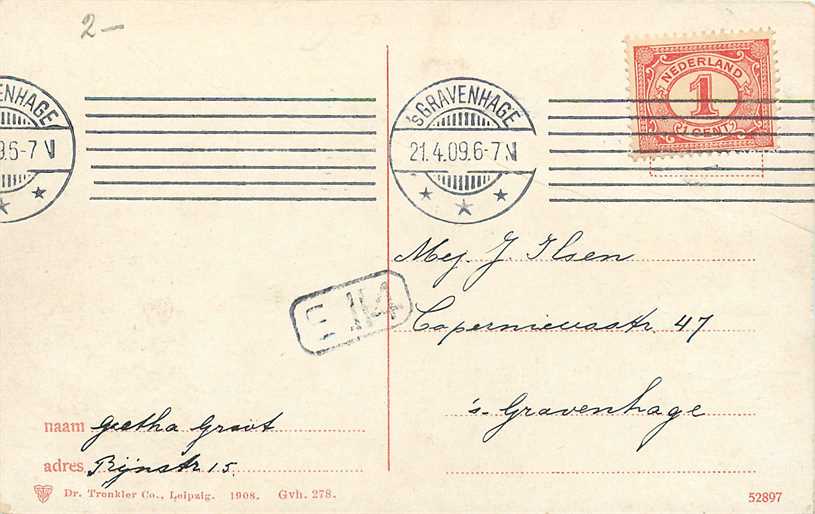 2-
NEDERLAND
1
1 CENT
'sGRAVENHAGE
21.4.09.6-7 N
VENHAGE
9.6-7 N
Mej. J. Ilsen
Copernicusstr. 47
's-Gravenhage
114
naam Geetha Groot
adres Rijnstr 15.
Dr. Trenkler Co., Leipzig. 1908. Gvh. 278.
52897